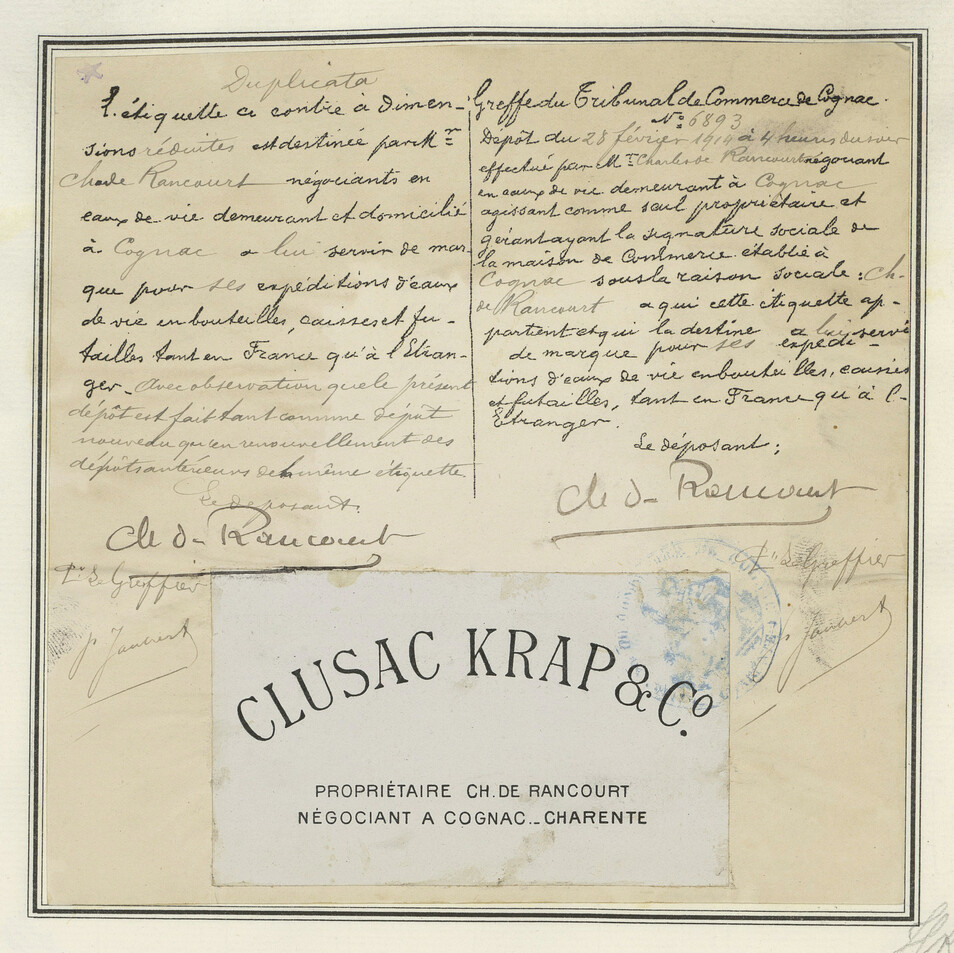 Duplicata
L'étiquette ci contre à dimen-
sions réduites est destinée par Mr
Ch de Rancourt négociants en
eaux de vie demeurant et domicilié
à Cognac a lui servir de mar-
que pour ses expéditions d'eaux
de vie en bouteilles, caisses et fu-
tailles tant en France qu'à l'Etran-
ger. avec observation que le présent
dépôt est fait tant comme dépôt
nouveau qu'en renouvellement des
dépôts antérieurs de la même étiquette
Le déposant:
Ch de Rancourt
Pr Le Greffier
P Jaubert
Greffe du Tribunal de Commerce de Cognac.
No 6893
Dépôt du 28 février 1914 à 4 heures du soir
effectué par Mr Charles de Rancourt négociant
en eaux de vie demeurant à Cognac
agissant comme seul propriétaire et
gérant ayant la signature sociale de
la maison de Commerce établie à
Cognac sous la raison sociale: Ch.
de Rancourt a qui cette étiquette ap-
partient et qui la destine a lui servi
de marque pour ses expédi-
tions d'eaux de vie en bouteilles, caisses
et futailles, tant en France qu'à l'-
Etranger.
Le déposant;
Ch de Rancourt
Pr Le Greffier
P Jaubert
CLUSAC KRAP & Co.
PROPRIÉTAIRE CH. DE RANCOURT
NÉGOCIANT A COGNAC._CHARENTE